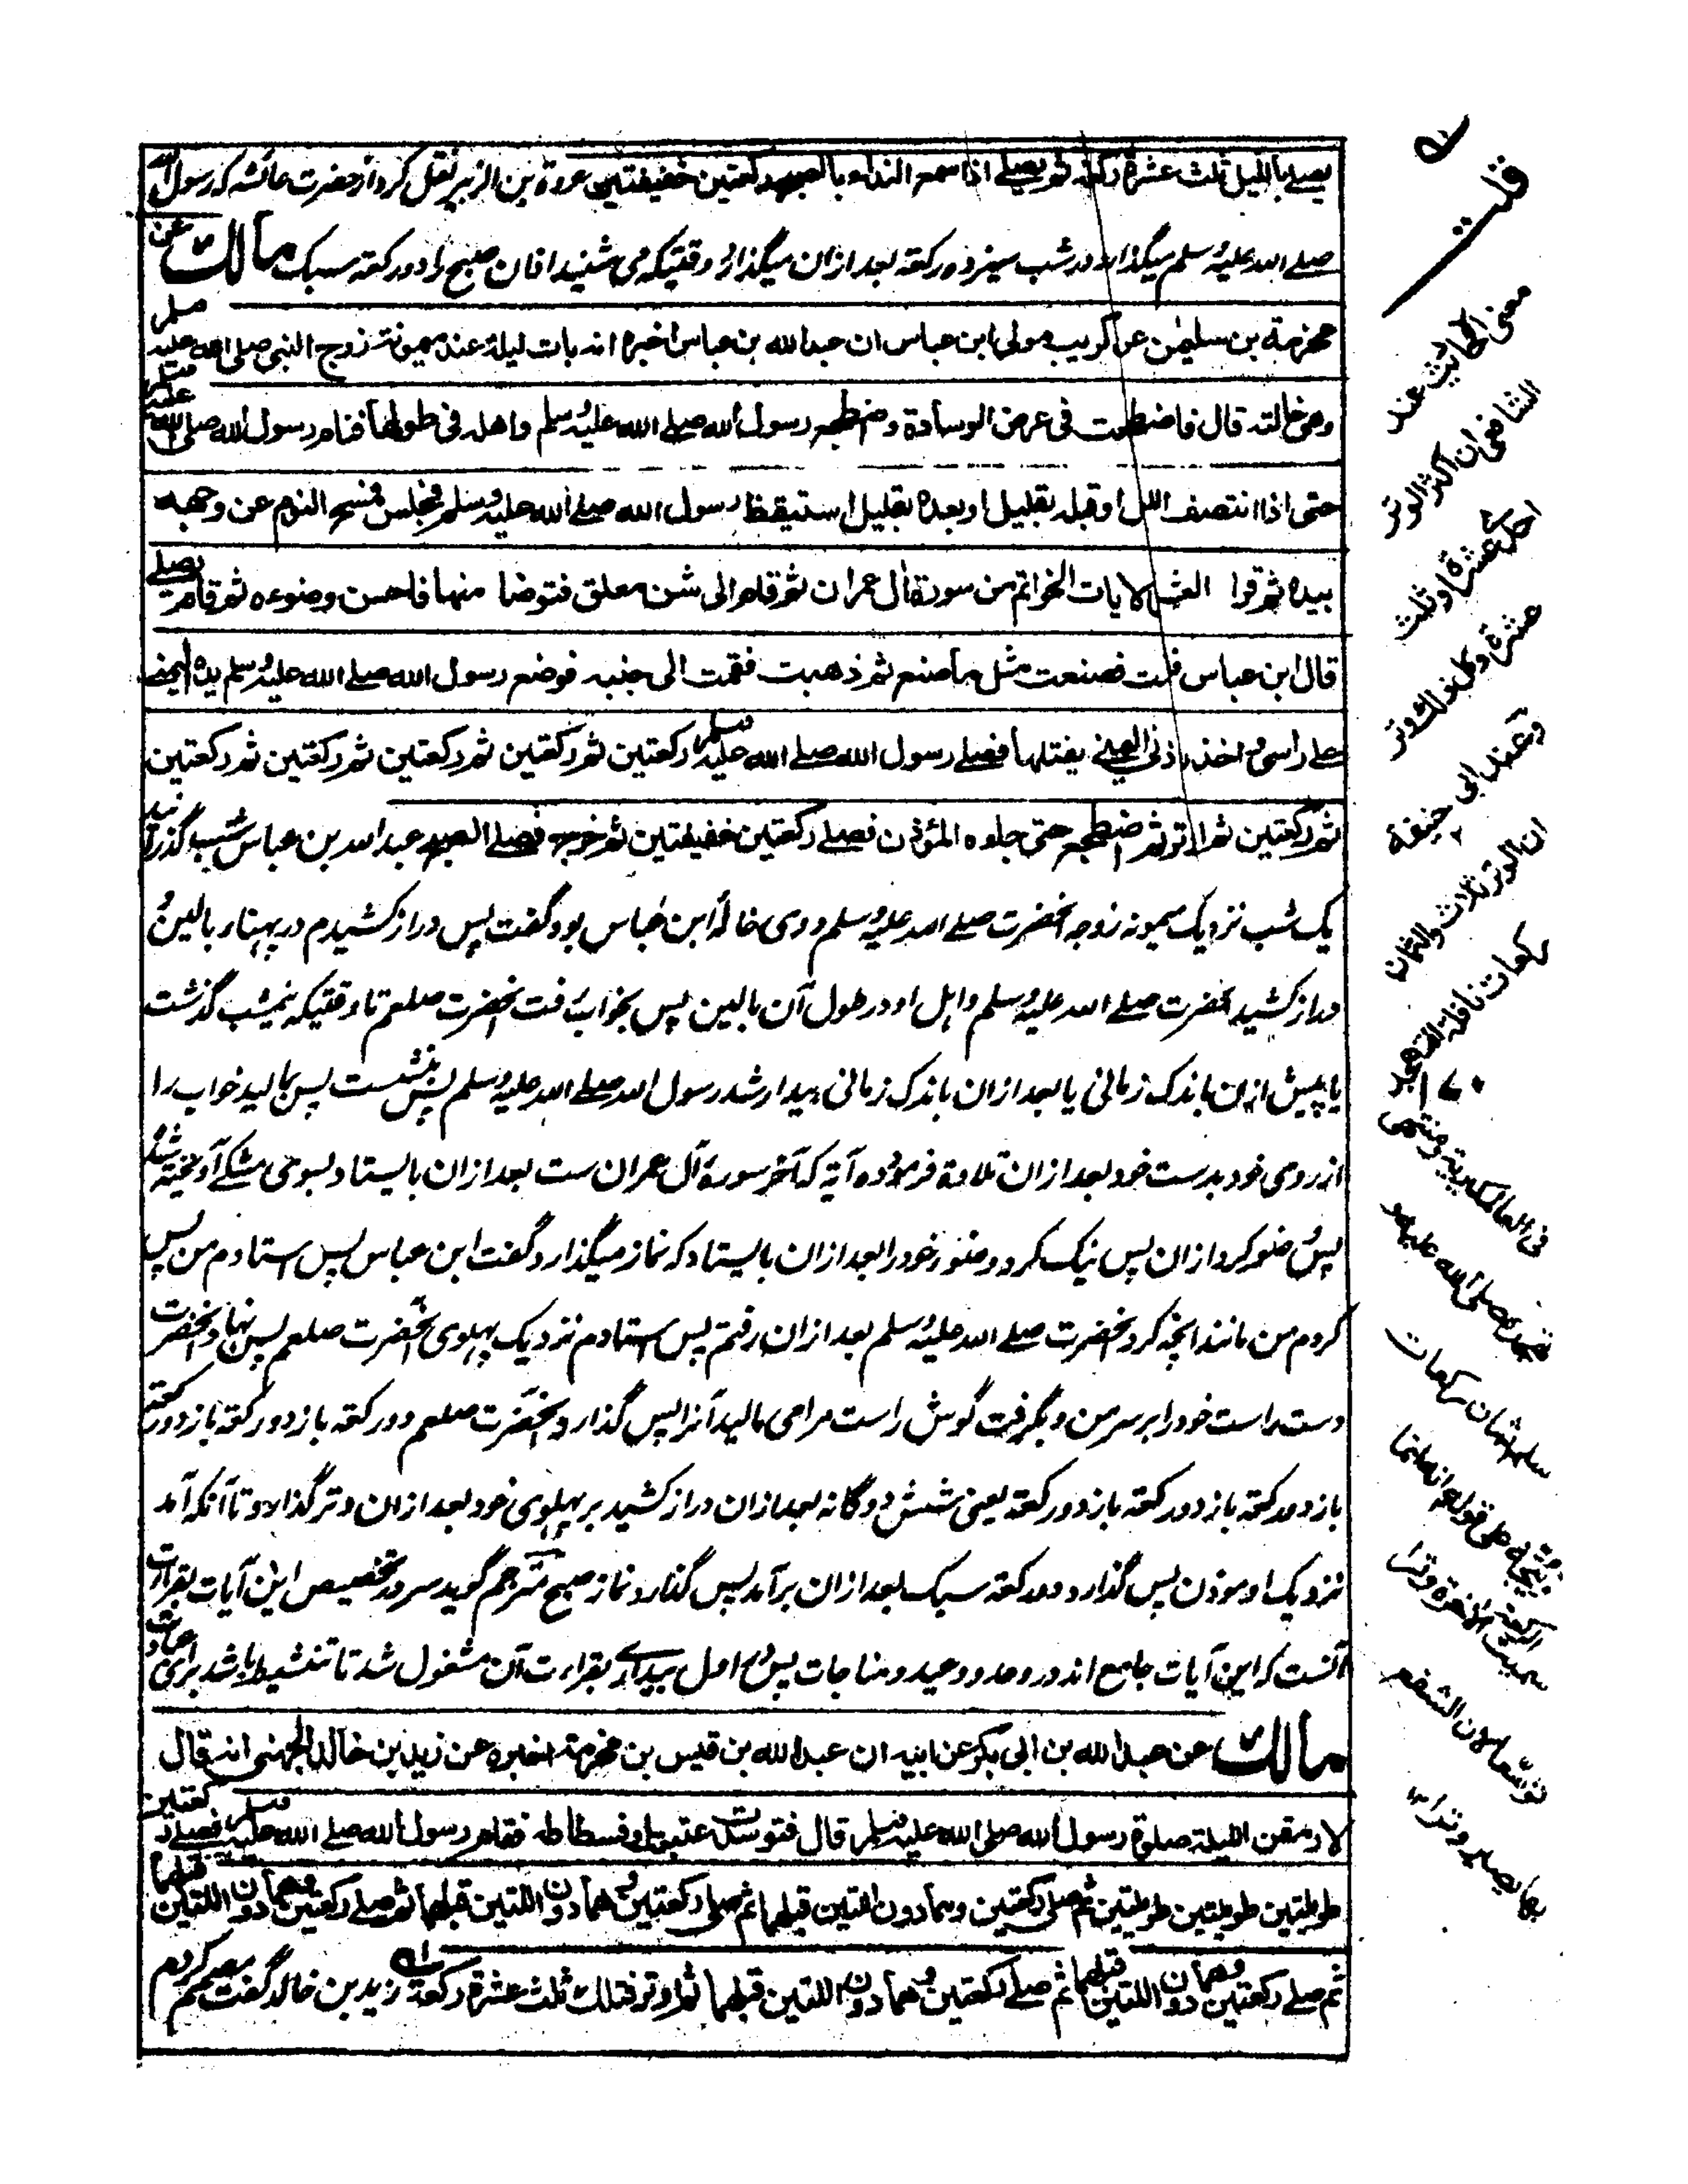 يصلے بالليل ثلث عشرة ركعة ثم يصلے اذا سمع النداء بالصبح ركعتين خفيفتين عروة بن الزبير نقل کرد از حضرت عائشہ کہ رسول الله
صلے الله عليه وسلم میگذارد در شب سیزده رکعة بعد ازان میگذارد وقتیکہ می شنید اذان صبح را دو رکعة سبک مالك عن
مخرمة بن سليمن عن كريب مولى ابن عباس ان عبد الله بن عباس اخبره انه بات ليلة عند ميمونة زوج النبي صلى الله عليه وسلم
وهي خالته قال فاضطجعت في عرض الوسادة واضطجع رسول الله صلے الله عليه وسلم واهله في طولها فنام رسول الله صلى الله عليه وسلم
حتى اذا انتصف الليل او قبله بقليل او بعده بقليل استيقظ رسول الله صلے الله عليه وسلم فجلس فمسح النوم عن وجهه
بيده ثم قرا العشر الايات الخواتم من سورة آل عمران ثم قام الى شن معلق فتوضا منها فاحسن وضوءه ثم قام يصلے
قال ابن عباس فقمت فصنعت مثل ما صنع ثم ذهبت فقمت الى جنبه فوضع رسول الله صلے الله عليه وسلم يده اليمنے
علے راسي واخذ باذني اليمنے يفتلها فصلے رسول الله صلے الله عليه وسلم ركعتين ثم ركعتين ثم ركعتين ثم ركعتين ثم ركعتين
ثم ركعتين ثم اوتر ثم اضطجع حتى جاءه المؤذن فصلے ركعتين خفيفتين ثم خرج فصلے الصبح عبد الله بن عباس شب گذرانید
یک شب نزدیک میمونہ زوجہ آنحضرت صلے الله علیه وسلم و وی خالۂ ابن عباس بود گفت پس دراز کشیدم در پہناء بالین و
دراز کشید آنحضرت صلے الله علیه وسلم و اہل او در طول آن بالین پس بخواب رفت آنحضرت صلعم تا وقتیکہ نیم شب گذشت
یا پیش ازان باندک زمانی یا بعد ازان باندک زمانی بیدار شد رسول الله صلے الله علیه وسلم پس بنشست پس بمالید خواب را
از روی خود بدست خود بعد ازان تلاوة فرمود ده آیہ کہ آخر سورۂ آل عمران ست بعد ازان بایستاد بسوی مشکے آویختہ شدہ
پس وضو کرد ازان پس نیک کرد وضوء خود را بعد ازان بایستاد کہ نماز میگذارد گفت ابن عباس پس استادم من پس
کردم من مانند آنچہ کرد آنحضرت صلے الله علیه وسلم بعد ازان رفتم پس استادم نزدیک پہلوی آنحضرت صلعم پس نہاد آنحضرت
دست راست خود را بر سر من و بگرفت گوش راست مرا می مالید آنرا پس گذارد آنحضرت صلعم دو رکعة باز دو رکعة باز دو رکعة
باز دو رکعة باز دو رکعة باز دو رکعة یعنی شش دوگانہ بعد ازان دراز کشید بر پہلوی خود بعد ازان وتر گذارد تا آنکہ آمد
نزدیک او موذن پس گذارد دو رکعة سبک بعد ازان برآمد پس گذارد نماز صبح مترجم گوید سر در تخصیص این آیات بقراءت
آنست کہ این آیات جامع اند در وعد و وعید و مناجات پس اول بیداری بقراءت آن مشغول شد تا تنشیط باشد برای
مالك عن عبد الله بن ابي بكر عن ابيه ان عبد الله بن قيس بن مخرمة اخبره عن زيد بن خالد الجهني انه قال
لارمقن الليلة صلوة رسول الله صلى الله عليه وسلم قال فتوسدت عتبته او فسطاطه فقام رسول الله صلے الله عليه وسلم فصلے ركعتين
طويلتين طويلتين طويلتين ثم صلى ركعتين وهما دون اللتين قبلهما ثم صلى ركعتين وهما دون اللتين قبلهما ثم صلے ركعتين وهما دون اللتين قبلهما
ثم صلے ركعتين وهما دون اللتين قبلهما ثم صلے ركعتين وهما دون اللتين قبلهما ثم اوتر فتلك ثلث عشرة ركعة زید بن خالد گفت مصمم کردم
قلت
معنى الحديث عند
الشافعي ان اكثر الوتر
احدى عشرة او ثلث
عشرة وكل ذلك وتر
وعند ابي حنيفة
ان الوتر ثلاث والثمان
ركعات نافلة التهجد
في العالمكيرية ومنتهى
تهجده صلى الله عليه و
سلم ثمان ركعات